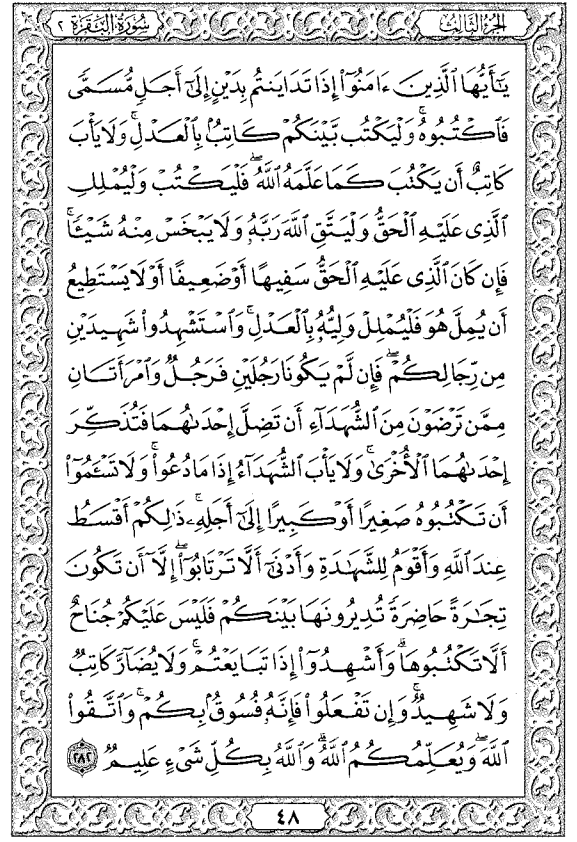 الجزء الثالث
سورة البقرة ٢
يَٰٓأَيُّهَا ٱلَّذِينَ ءَامَنُوٓا۟ إِذَا تَدَايَنتُم بِدَيْنٍ إِلَىٰٓ أَجَلٍ مُّسَمًّى
فَٱكْتُبُوهُ ۚ وَلْيَكْتُب بَّيْنَكُمْ كَاتِبٌۢ بِٱلْعَدْلِ ۚ وَلَا يَأْبَ
كَاتِبٌ أَن يَكْتُبَ كَمَا عَلَّمَهُ ٱللَّهُ ۚ فَلْيَكْتُبْ وَلْيُمْلِلِ
ٱلَّذِى عَلَيْهِ ٱلْحَقُّ وَلْيَتَّقِ ٱللَّهَ رَبَّهُۥ وَلَا يَبْخَسْ مِنْهُ شَيْـًٔا ۚ
فَإِن كَانَ ٱلَّذِى عَلَيْهِ ٱلْحَقُّ سَفِيهًا أَوْ ضَعِيفًا أَوْ لَا يَسْتَطِيعُ
أَن يُمِلَّ هُوَ فَلْيُمْلِلْ وَلِيُّهُۥ بِٱلْعَدْلِ ۚ وَٱسْتَشْهِدُوا۟ شَهِيدَيْنِ
مِن رِّجَالِكُمْ ۖ فَإِن لَّمْ يَكُونَا رَجُلَيْنِ فَرَجُلٌ وَٱمْرَأَتَانِ
مِمَّن تَرْضَوْنَ مِنَ ٱلشُّهَدَآءِ أَن تَضِلَّ إِحْدَىٰهُمَا فَتُذَكِّرَ
إِحْدَىٰهُمَا ٱلْأُخْرَىٰ ۚ وَلَا يَأْبَ ٱلشُّهَدَآءُ إِذَا مَا دُعُوا۟ ۚ وَلَا تَسْـَٔمُوٓا۟
أَن تَكْتُبُوهُ صَغِيرًا أَوْ كَبِيرًا إِلَىٰٓ أَجَلِهِۦ ۚ ذَٰلِكُمْ أَقْسَطُ
عِندَ ٱللَّهِ وَأَقْوَمُ لِلشَّهَٰدَةِ وَأَدْنَىٰٓ أَلَّا تَرْتَابُوٓا۟ ۖ إِلَّآ أَن تَكُونَ
تِجَٰرَةً حَاضِرَةً تُدِيرُونَهَا بَيْنَكُمْ فَلَيْسَ عَلَيْكُمْ جُنَاحٌ
أَلَّا تَكْتُبُوهَا ۗ وَأَشْهِدُوٓا۟ إِذَا تَبَايَعْتُمْ ۚ وَلَا يُضَآرَّ كَاتِبٌ
وَلَا شَهِيدٌ ۚ وَإِن تَفْعَلُوا۟ فَإِنَّهُۥ فُسُوقٌۢ بِكُمْ ۗ وَٱتَّقُوا۟
ٱللَّهَ ۖ وَيُعَلِّمُكُمُ ٱللَّهُ ۗ وَٱللَّهُ بِكُلِّ شَىْءٍ عَلِيمٌ ٢٨٢
٤٨